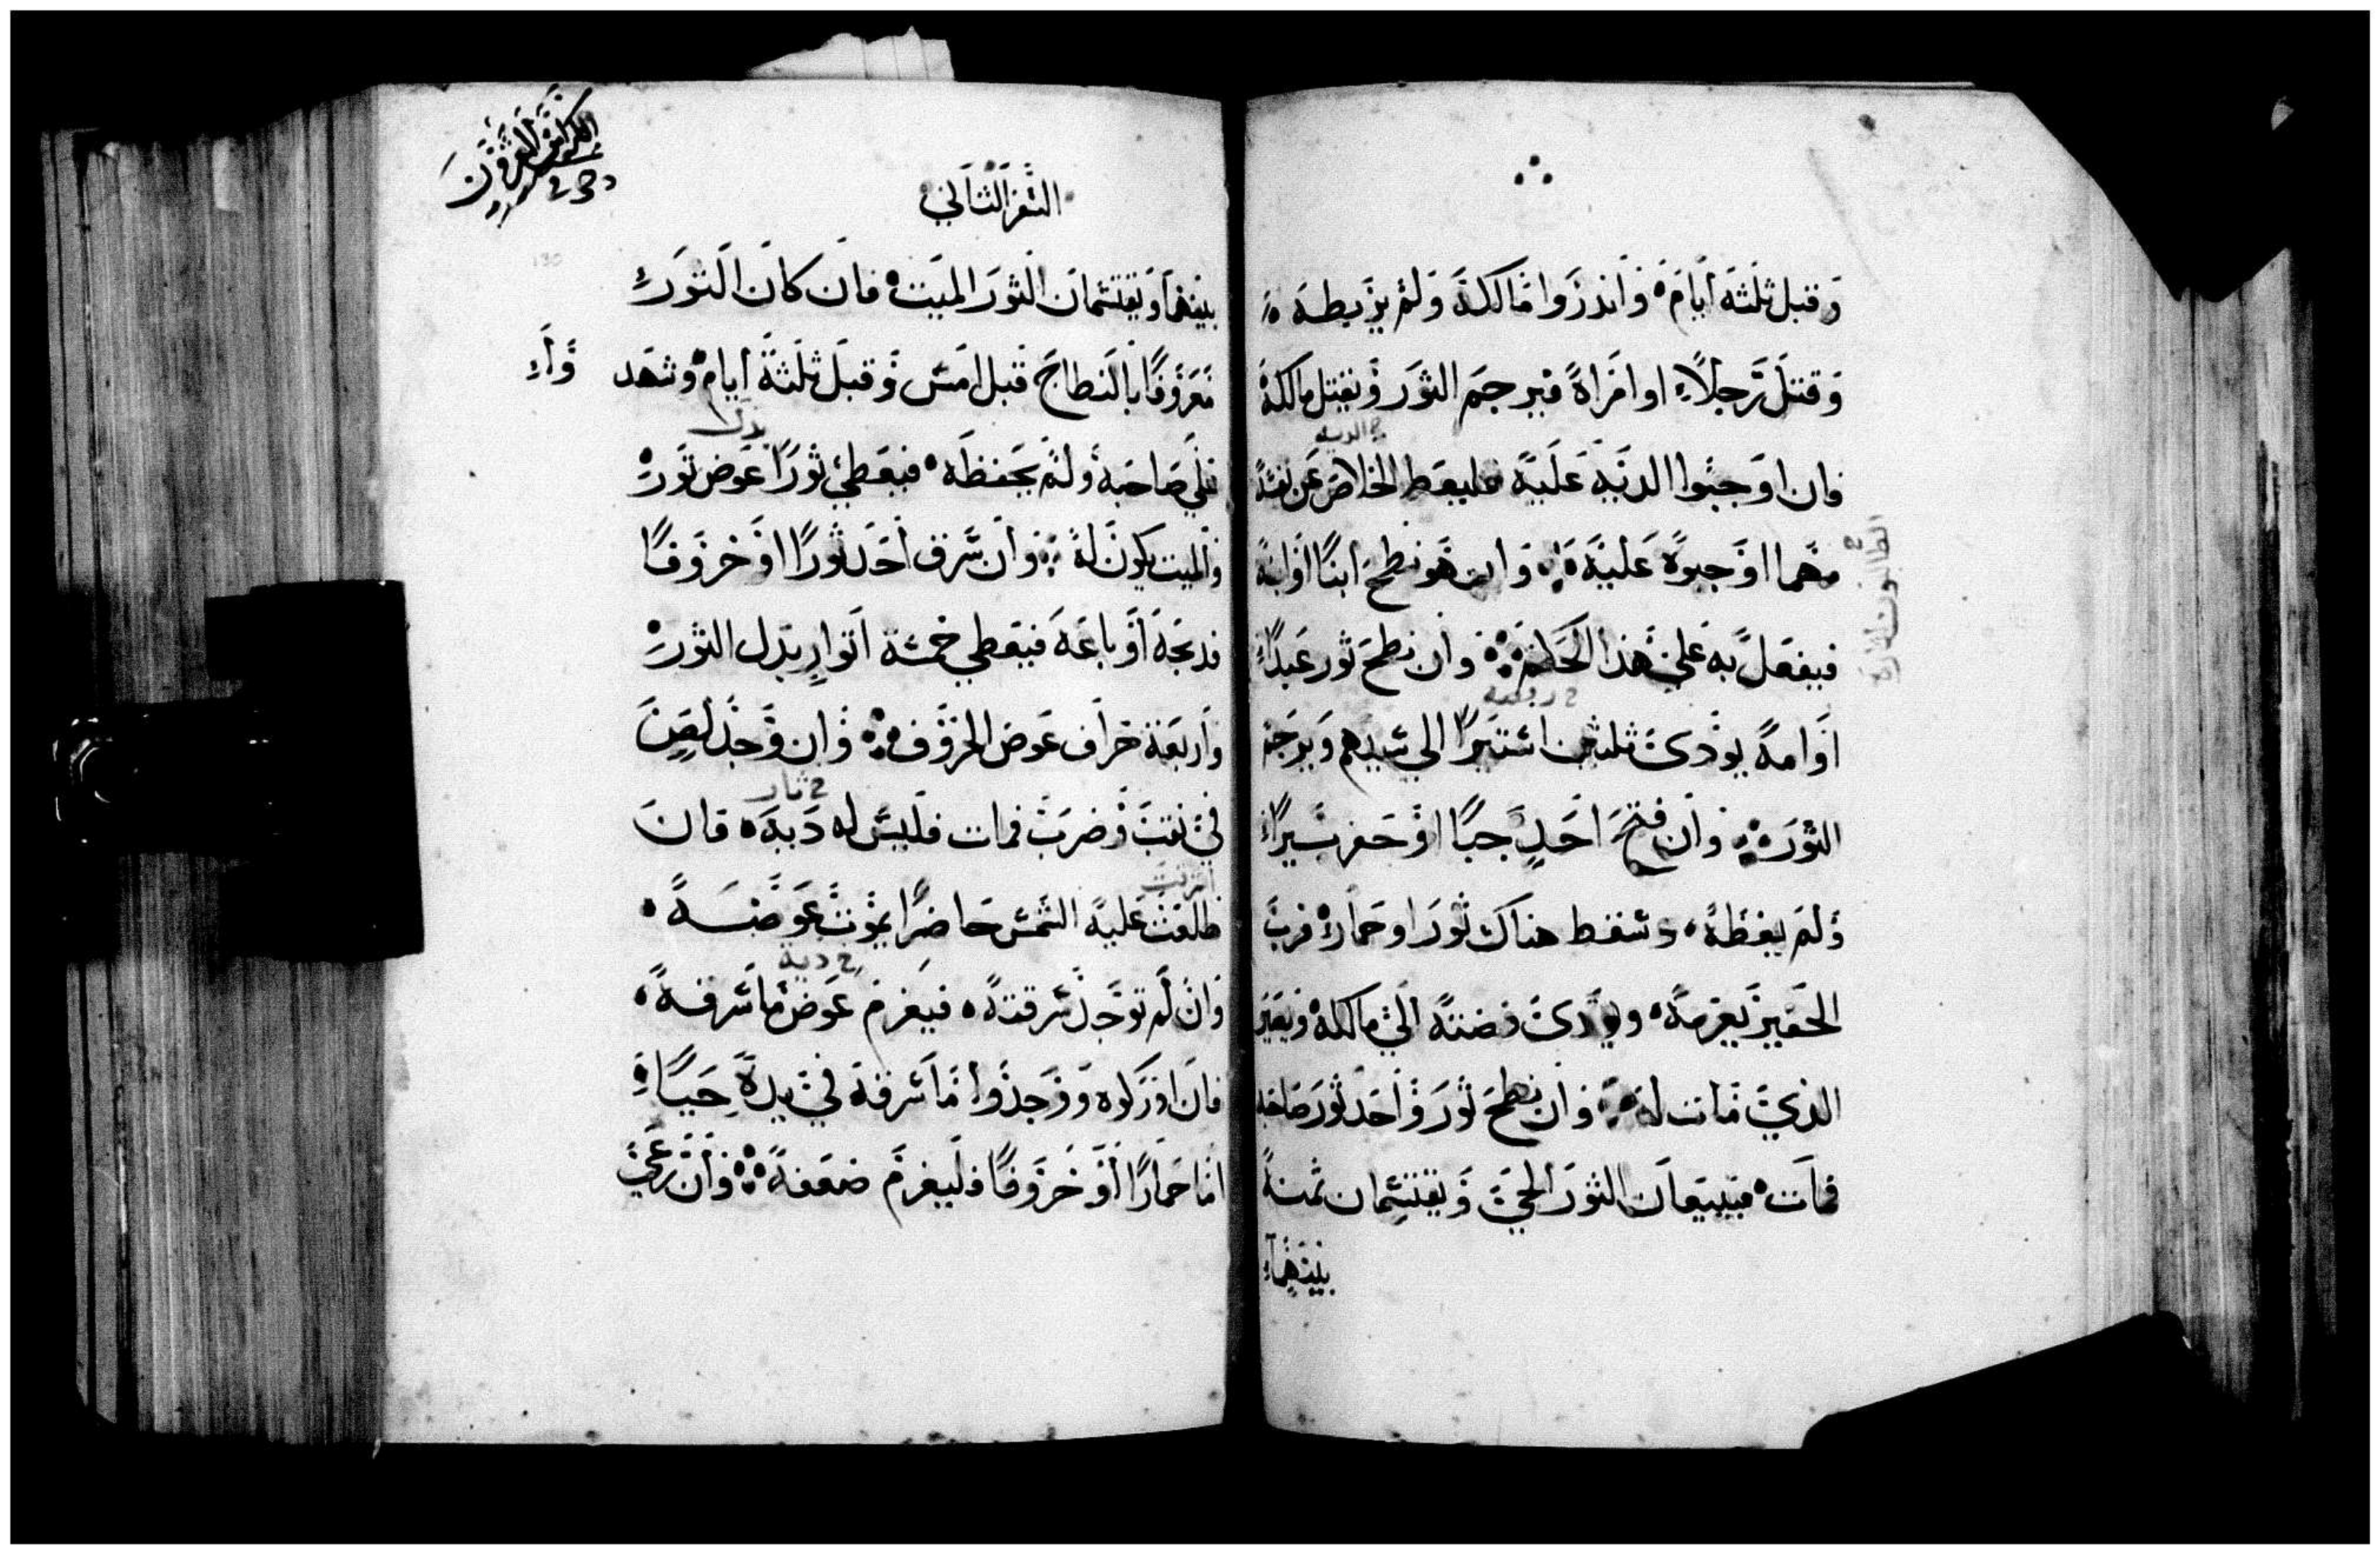 وقبل ثلثة ايام، وانذروا مالكه ولم يربطه،
وقتل رجلاً او امراة فيرجم الثور ويقتل مالكه
فان اوجبوا الدية عليه فليعط الخلاص عن نفسه
الدية
مهما اوجبوه عليه، وان هو نطح ابنًا او ابنة
فيفعل به على هذا الحكم، وان نطح ثور عبدًا
او امة يودي ثلثين استيرًا الي سيدهم ويرجم
الثور، وان فتح احد جبًا او حفر بيرًا
ولم يغطه، وسقط هناك ثور او حمار، فرب
الحفير يغرمه، ويودي فضته الي مالكه ويصير
الذي مات له، وان نطح ثور واحد ثور صاحبه
فمات، فيبيعان الثور الحي ويقتسمان ثمنه
بينهما
السفر الثاني
الكراس العشرون
بينهما ويقتسمان الثور الميت، فان كان الثور
معروفًا بالنطاح قبل امس وقبل ثلثة ايام وشهد
بدل
علي صاحبه ولم يحفظه، فيعطي ثورًا عوض ثور
والميت يكون له، وان سرق احد ثورًا او خروفًا
فذبحه او باعه فيعطي خمسة اثوار بدل الثور
واربعة خراف عوض الخروف، وان وجد لص
في نقب وضرب فمات فليس له دية، فان
ثار
طلعت عليه الشمس حاضرًا يموت عوضه،
اشرقت
وان لم توجد سرقته، فيغرم عوض ما سرقه،
دية
فان ادركوه ووجدوا ما سرقه في يده حيًا
اما حمارًا او خروفًا فليغرم ضعفه، وان رعي